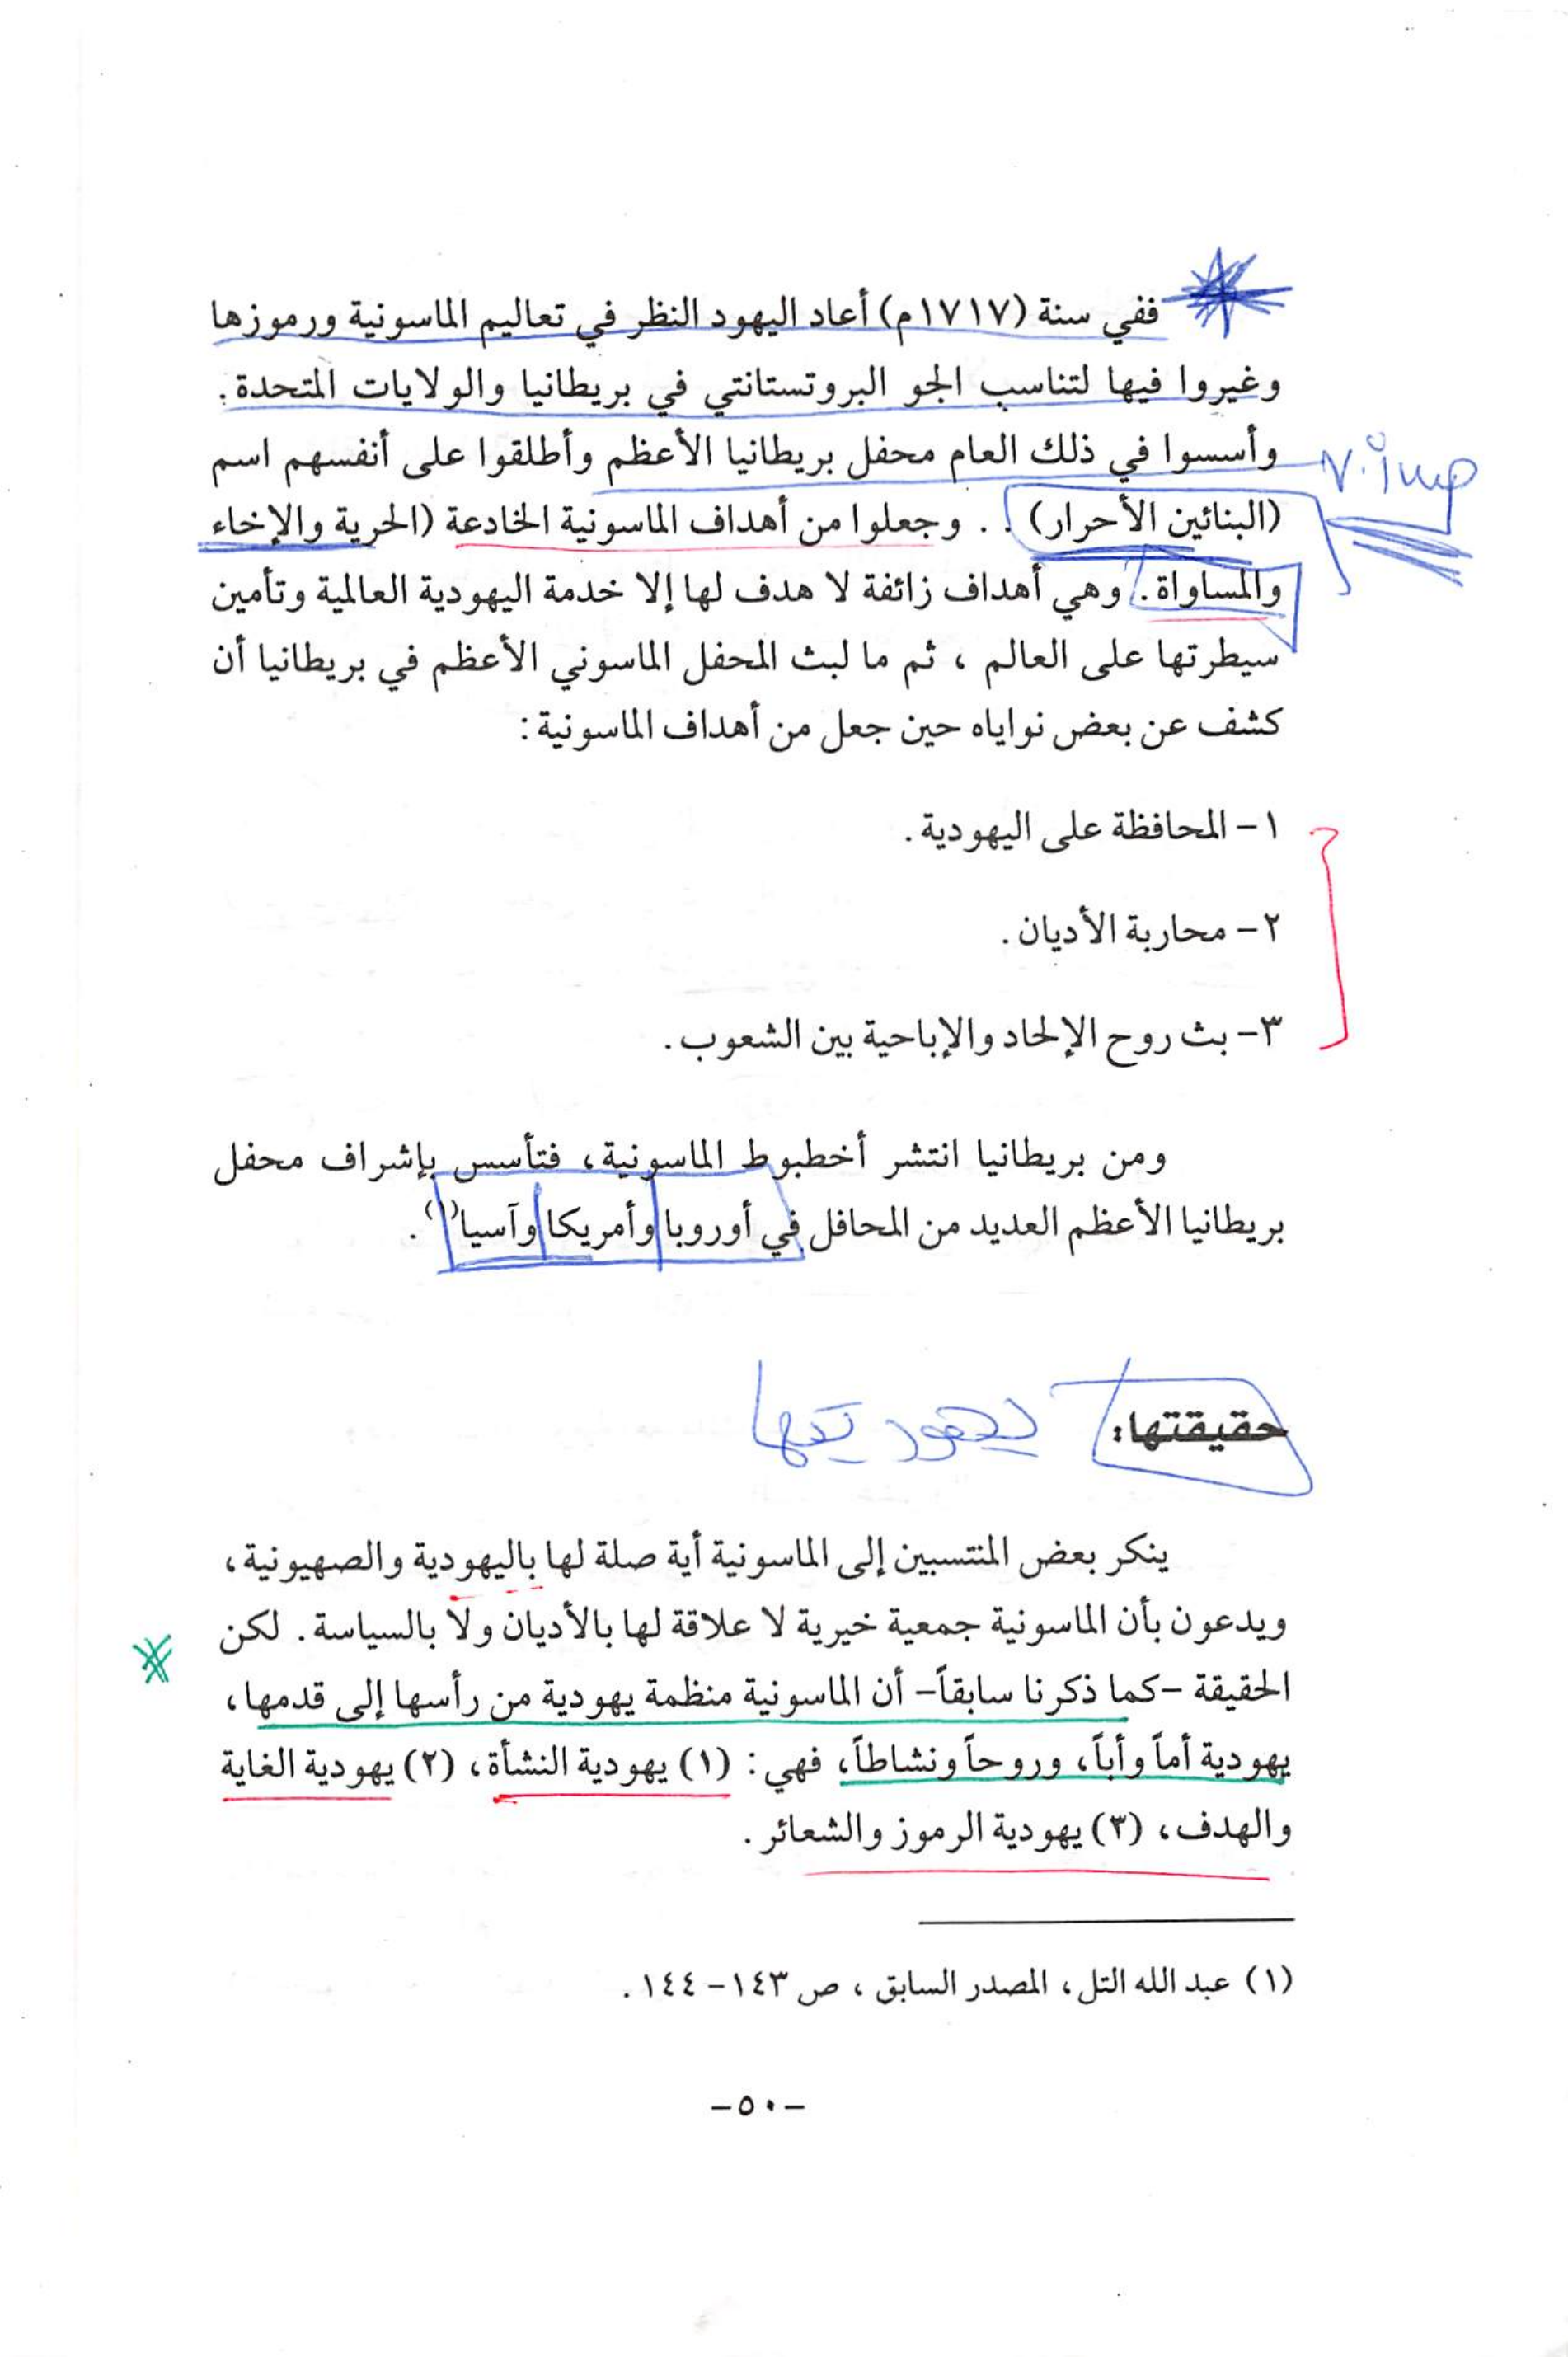 ففي سنة (١٧١٧م) أعاد اليهود النظر في تعاليم الماسونية ورموزها
وغيروا فيها لتناسب الجو البروتستانتي في بريطانيا والولايات المتحدة.
وأسسوا في ذلك العام محفل بريطانيا الأعظم وأطلقوا على أنفسهم اسم
V.imp
(البنائين الأحرار) . . وجعلوا من أهداف الماسونية الخادعة (الحرية والإخاء
والمساواة . وهي أهداف زائفة لا هدف لها إلا خدمة اليهودية العالمية وتأمين
سيطرتها على العالم ، ثم ما لبث المحفل الماسوني الأعظم في بريطانيا أن
كشف عن بعض نواياه حين جعل من أهداف الماسونية:
١- المحافظة على اليهودية .
٢- محاربة الأديان .
٣- بث روح الإلحاد والإباحية بين الشعوب .
ومن بريطانيا انتشر أخطبوط الماسونية، فتأسس بإشراف محفل
بريطانيا الأعظم العديد من المحافل في أوروبا وأمريكا وآسيا(١) .
حقيقتها: يهوديتها
ينكر بعض المنتسبين إلى الماسونية أية صلة لها باليهودية والصهيونية،
ويدعون بأن الماسونية جمعية خيرية لا علاقة لها بالأديان ولا بالسياسة. لكن
الحقيقة -كما ذكرنا سابقاً- أن الماسونية منظمة يهودية من رأسها إلى قدمها،
يهودية أماً وأباً، وروحاً ونشاطاً، فهي: (١) يهودية النشأة، (٢) يهودية الغاية
والهدف، (٣) يهودية الرموز والشعائر .
(١) عبد الله التل، المصدر السابق ، ص ١٤٣-١٤٤ .
-٥٠-